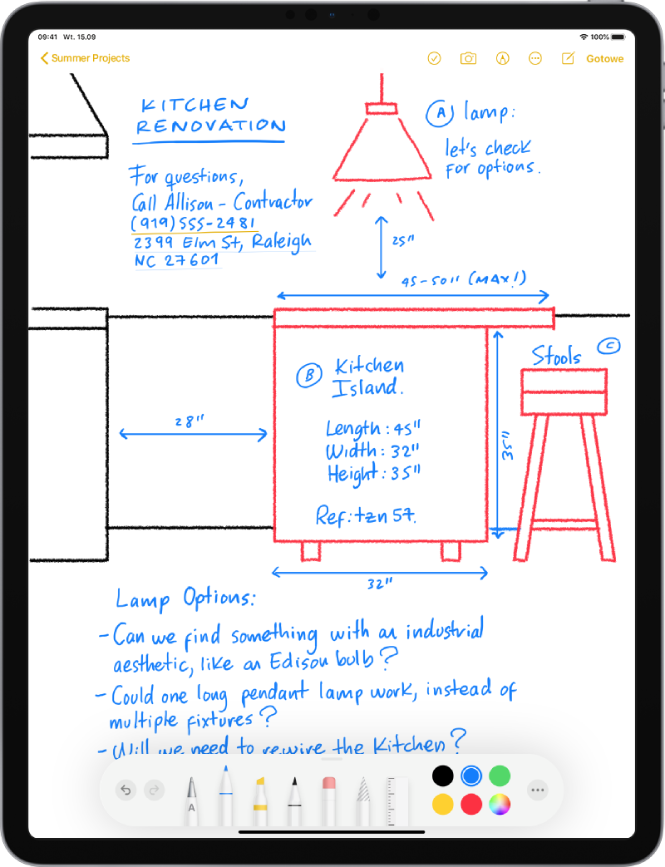 09:41 Wt. 15.09
100%
Summer Projects
Gotowe
KITCHEN
RENOVATION
For questions,
Call Allison - Contractor
(919) 555-2481
2399 Elm St, Raleigh
NC 27601
A lamp:
let's check
for options.
25"
45-50" (MAX!)
B Kitchen
Island.
Length: 45"
Width: 32"
Height: 35"
Ref: tzn 57.
28"
35"
Stools C
32"
Lamp Options:
- Can we find something with an industrial
aesthetic, like an Edison bulb?
- Could one long pendant lamp work, instead of
multiple fixtures?
- Will we need to rewire the Kitchen?
A